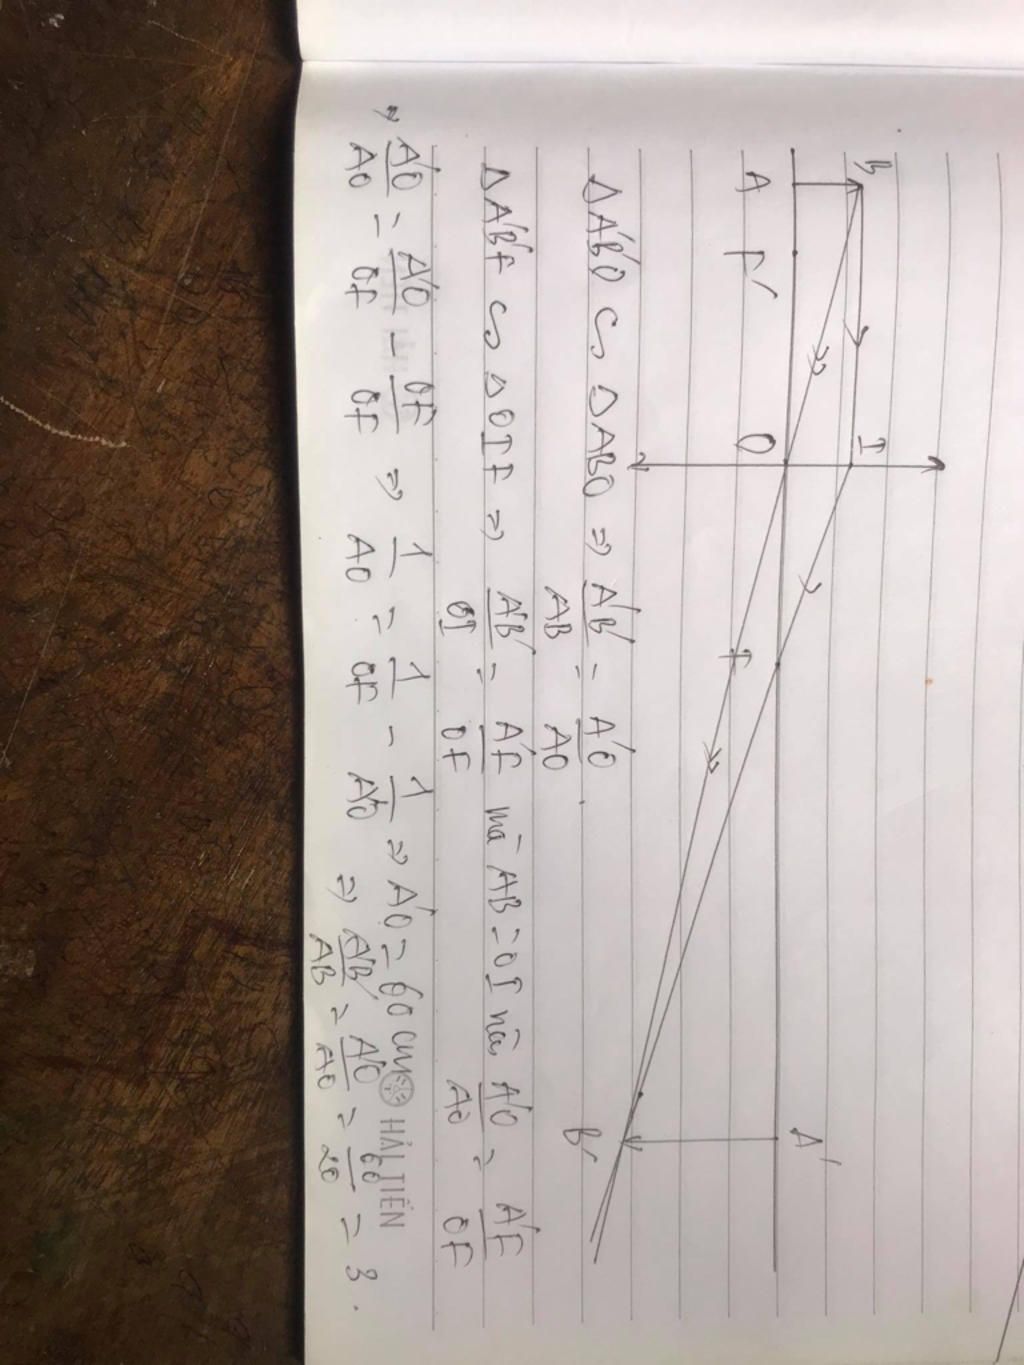 B I
A F' O F A'
B'
ΔA'B'O ∽ ΔABO ⇒ A'B'/AB = A'O/AO.
ΔA'B'F ∽ ΔOIF ⇒ A'B'/OI = A'F/OF mà AB = OI nên A'O/AO = A'F/OF
⇒ A'O/AO = A'O/OF - OF/OF ⇒ 1/AO = 1/OF - 1/A'O ⇒ A'O = 60 cm
⇒ A'B'/AB = A'O/AO = 60/20 = 3.
HẢI TIẾN